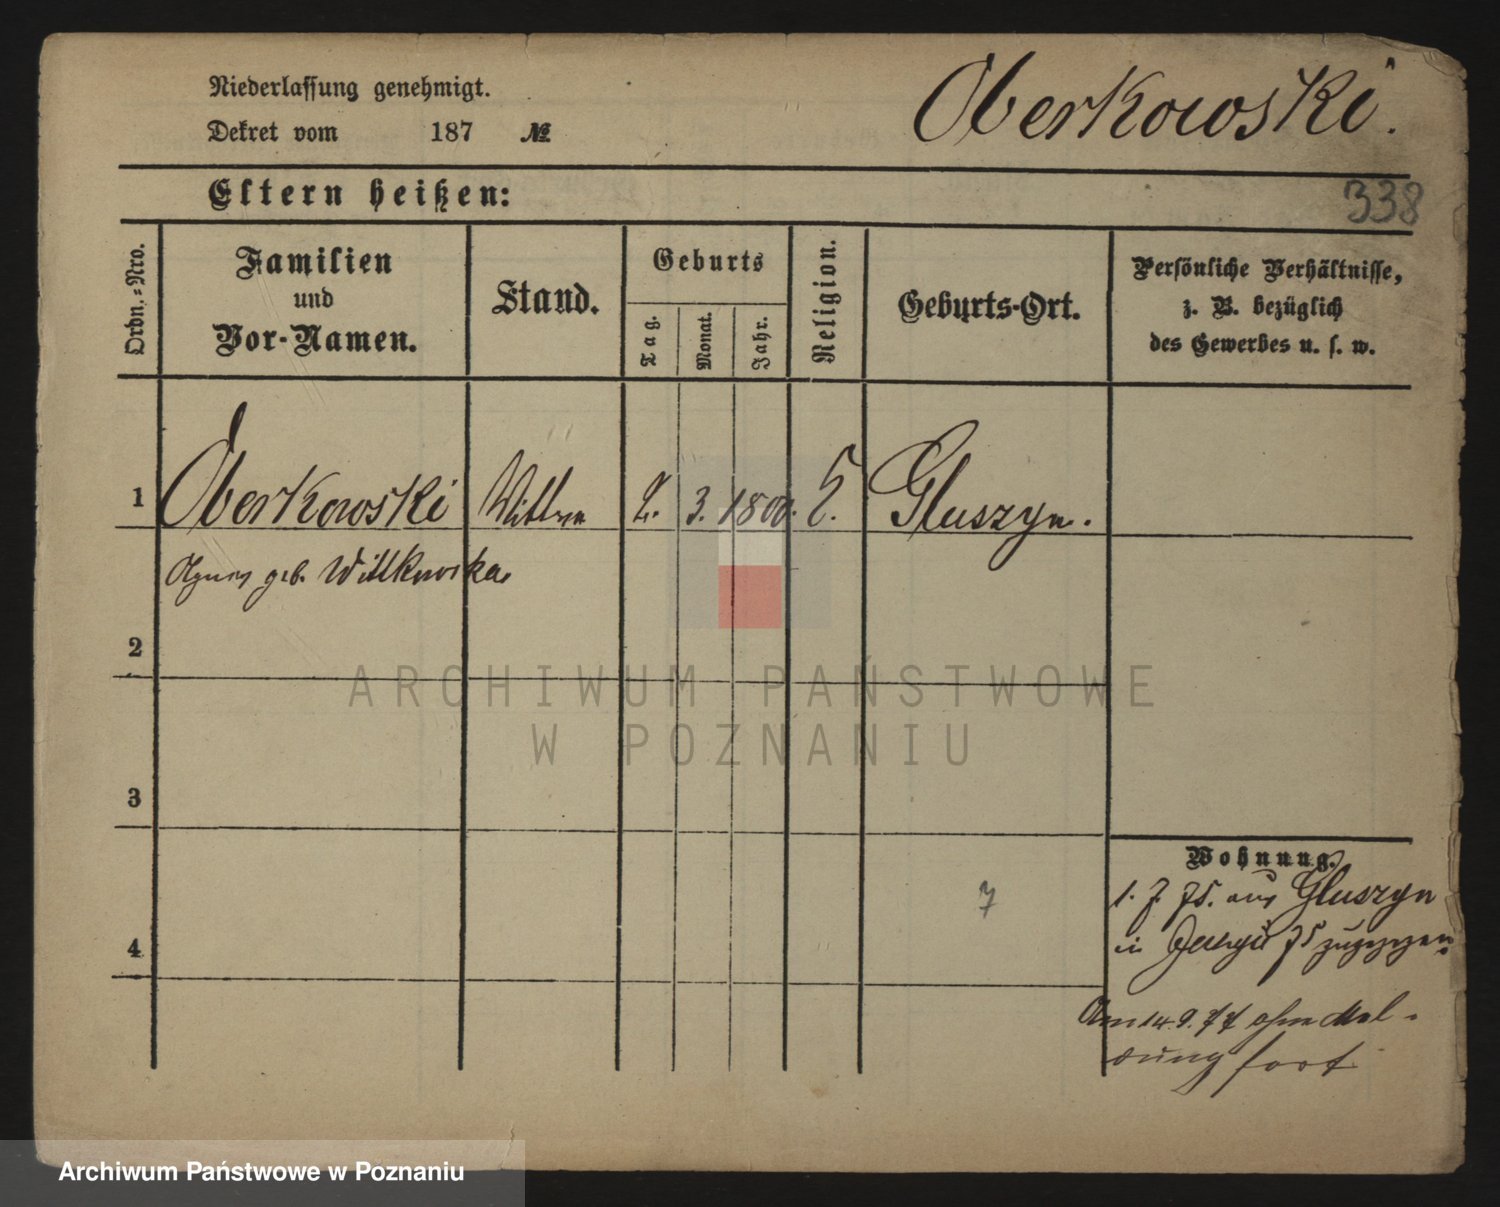 Niederlassung genehmigt.
Oberkowski.
Dekret vom 187 №
Eltern heißen:
338
Ordn.-Nro.
Familien
und
Vor-Namen.
Stand.
Geburts
Tag.
Monat.
Jahr.
Religion.
Geburts-Ort.
Persönliche Verhältnisse,
z. B. bezüglich
des Gewerbes u. s. w.
1 Oberkowski Wittwe 2. 3. 1800. Gluszyn.
Agnes geb. Wittkowska
2
ARCHIWUM PAŃSTWOWE
W POZNANIU
3
Wohnung.
7
1. 7. 75. aus Gluszyn
in 75 zugezogen
4
Am 14.9.77 ohne Mel-
dung fort
Archiwum Państwowe w Poznaniu